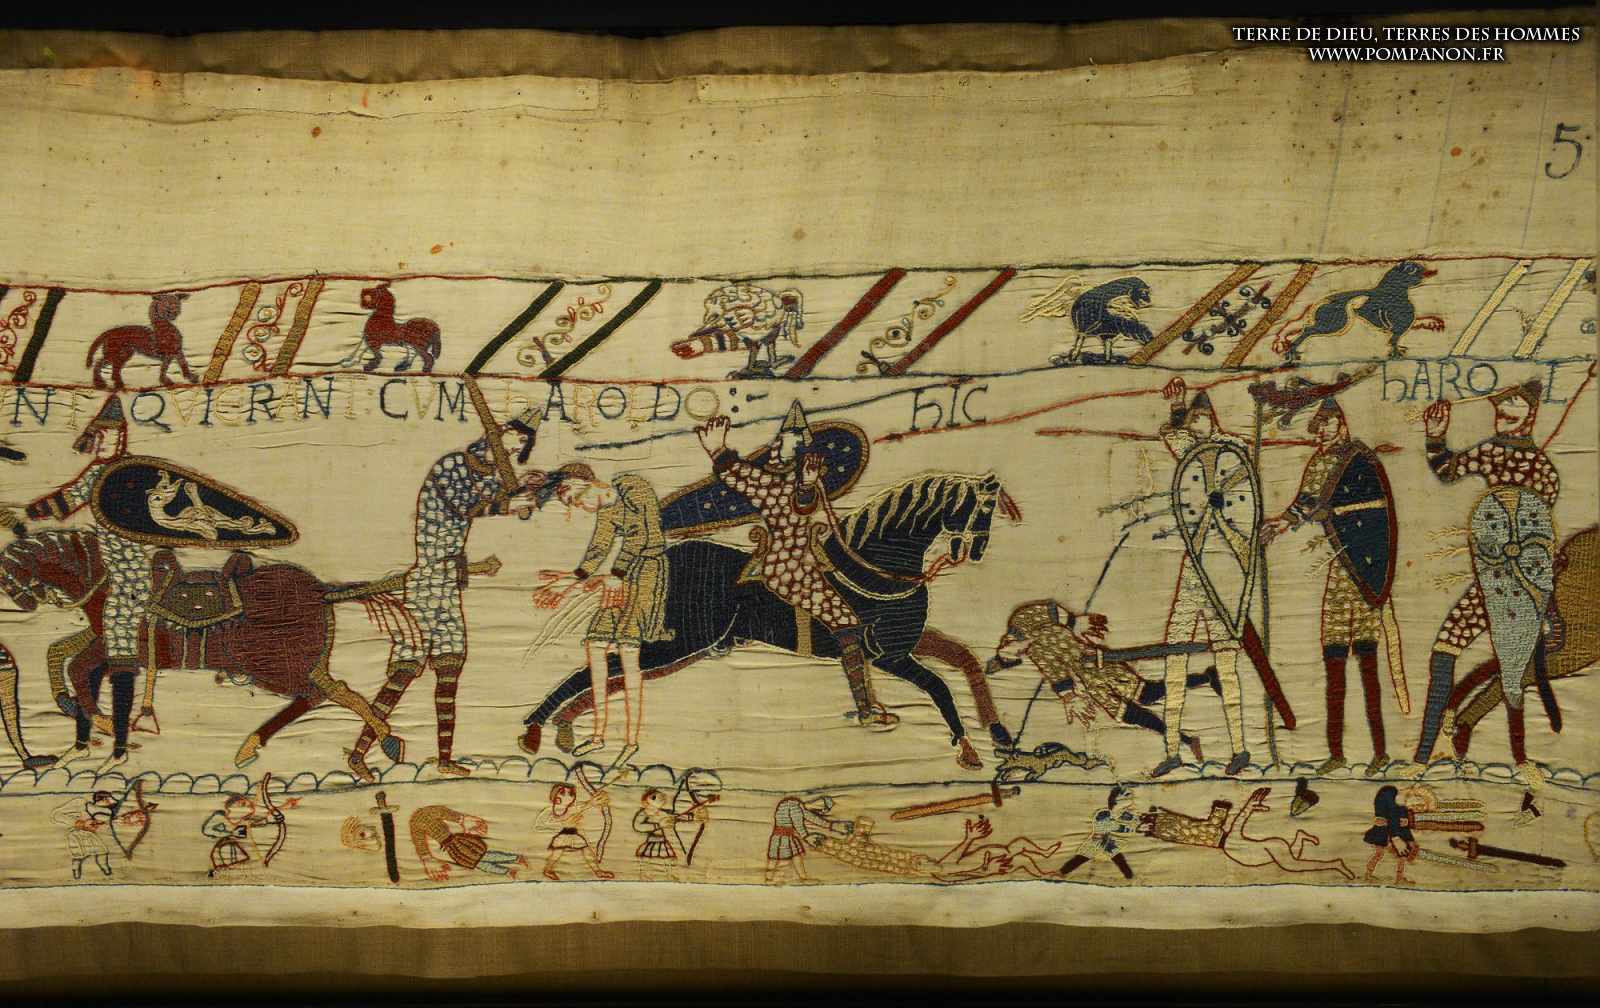 TERRE DE DIEU, TERRES DES HOMMES
WWW.POMPANON.FR
5
NT QVIERANT: CVM hAROLDO:- hIC hAROL